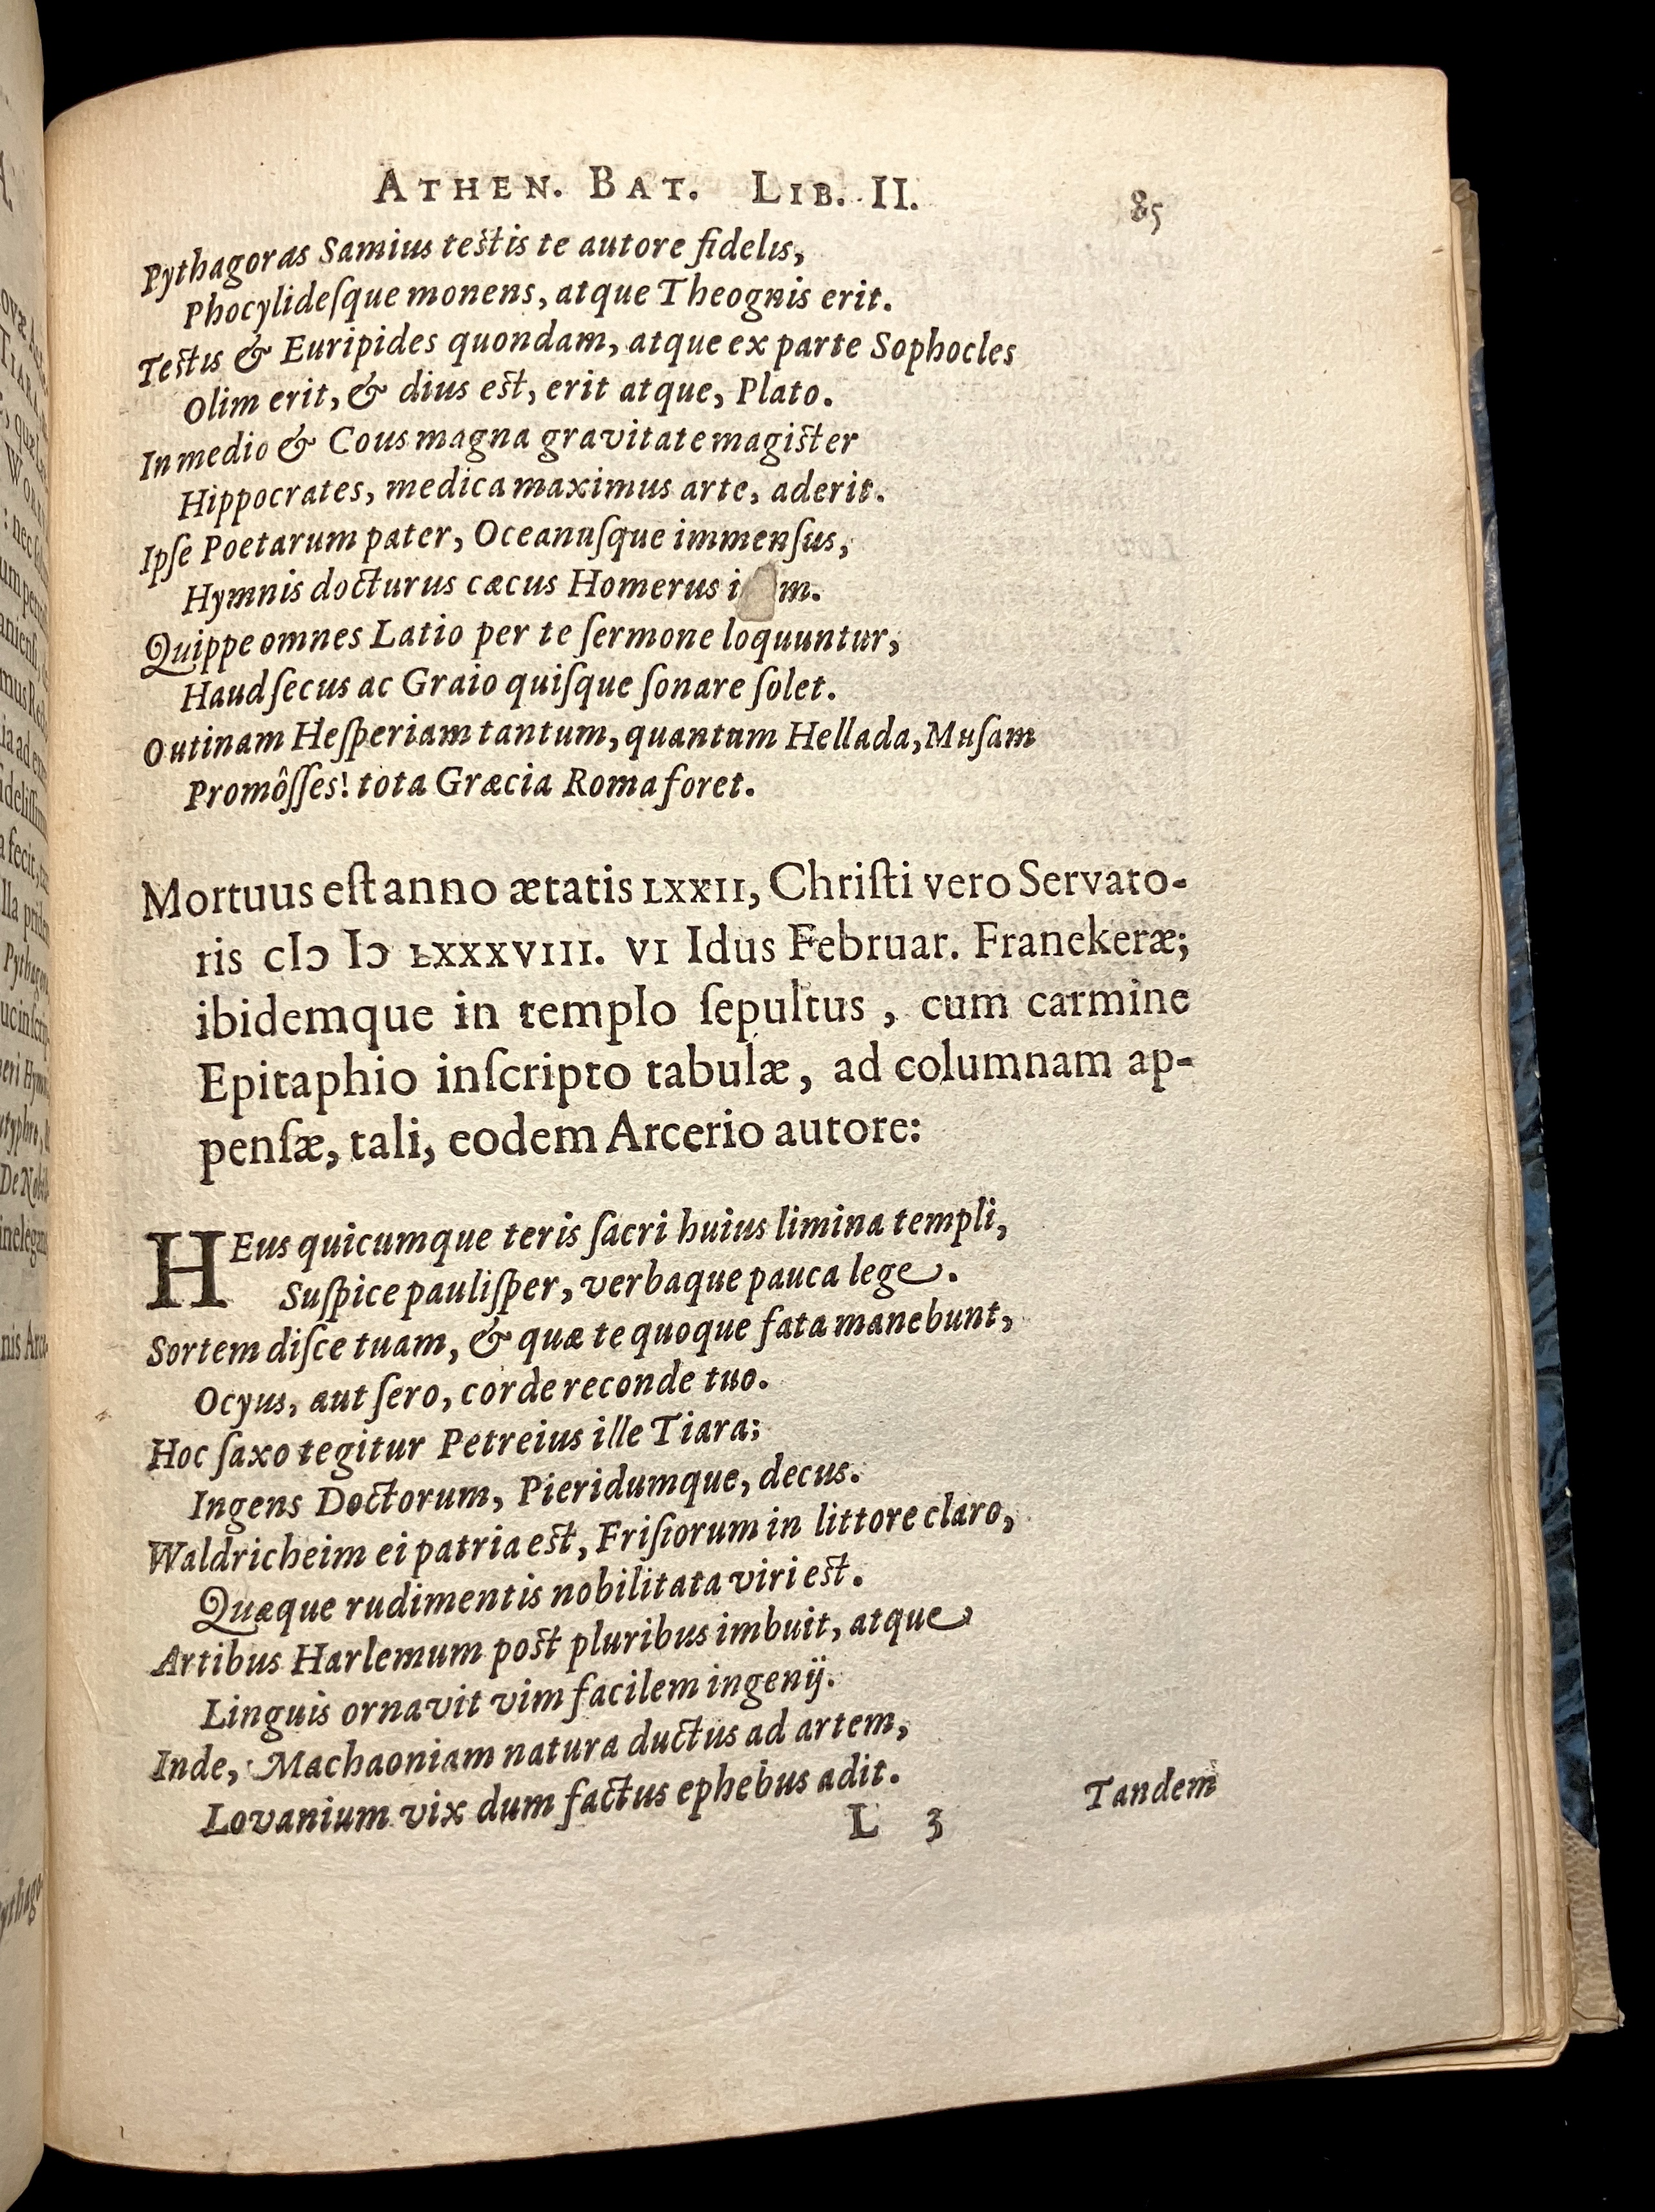 ATHEN. BAT. LIB. II. 85
Pythagoras Samius testis te autore fidelis,
Phocylideſque monens, atque Theognis erit.
Testis & Euripides quondam, atque ex parte Sophocles
Olim erit, & dius est, erit atque, Plato.
In medio & Cous magna gravitate magister
Hippocrates, medica maximus arte, aderit.
Ipſe Poetarum pater, Oceanuſque immenſus,
Hymnis docturus cæcus Homerus
Quippe omnes Latio per te ſermone loquuntur,
Haud ſecus ac Graio quiſque ſonare ſolet.
O utinam Heſperiam tantum, quantum Hellada, Muſam
Promôſſes! tota Græcia Roma foret.
Mortuus eſt anno ætatis LXXII, Chriſti vero Servato-
ris cIɔ Iɔ LXXXVIII. VI Idus Februar. Franekeræ;
ibidemque in templo ſepultus, cum carmine
Epitaphio inſcripto tabulæ, ad columnam ap-
penſæ, tali, eodem Arcerio autore:
HEus quicumque teris ſacri huius limina templi,
Suſpice pauliſper, verbaque pauca lege.
Sortem diſce tuam, & quæ te quoque fata manebunt,
Ocyus, aut ſero, corde reconde tuo.
Hoc ſaxo tegitur Petreius ille Tiara;
Ingens Doctorum, Pieridumque, decus.
Waldricheim ei patria est, Friſiorum in littore claro,
Quæque rudimentis nobilitata viri est.
Artibus Harlemum post pluribus imbuit, atque
Linguis ornavit vim facilem ingenij.
Inde, Machaoniam natura ductus ad artem,
Lovanium vix dum factus ephebus adit.
L 3 Tandem